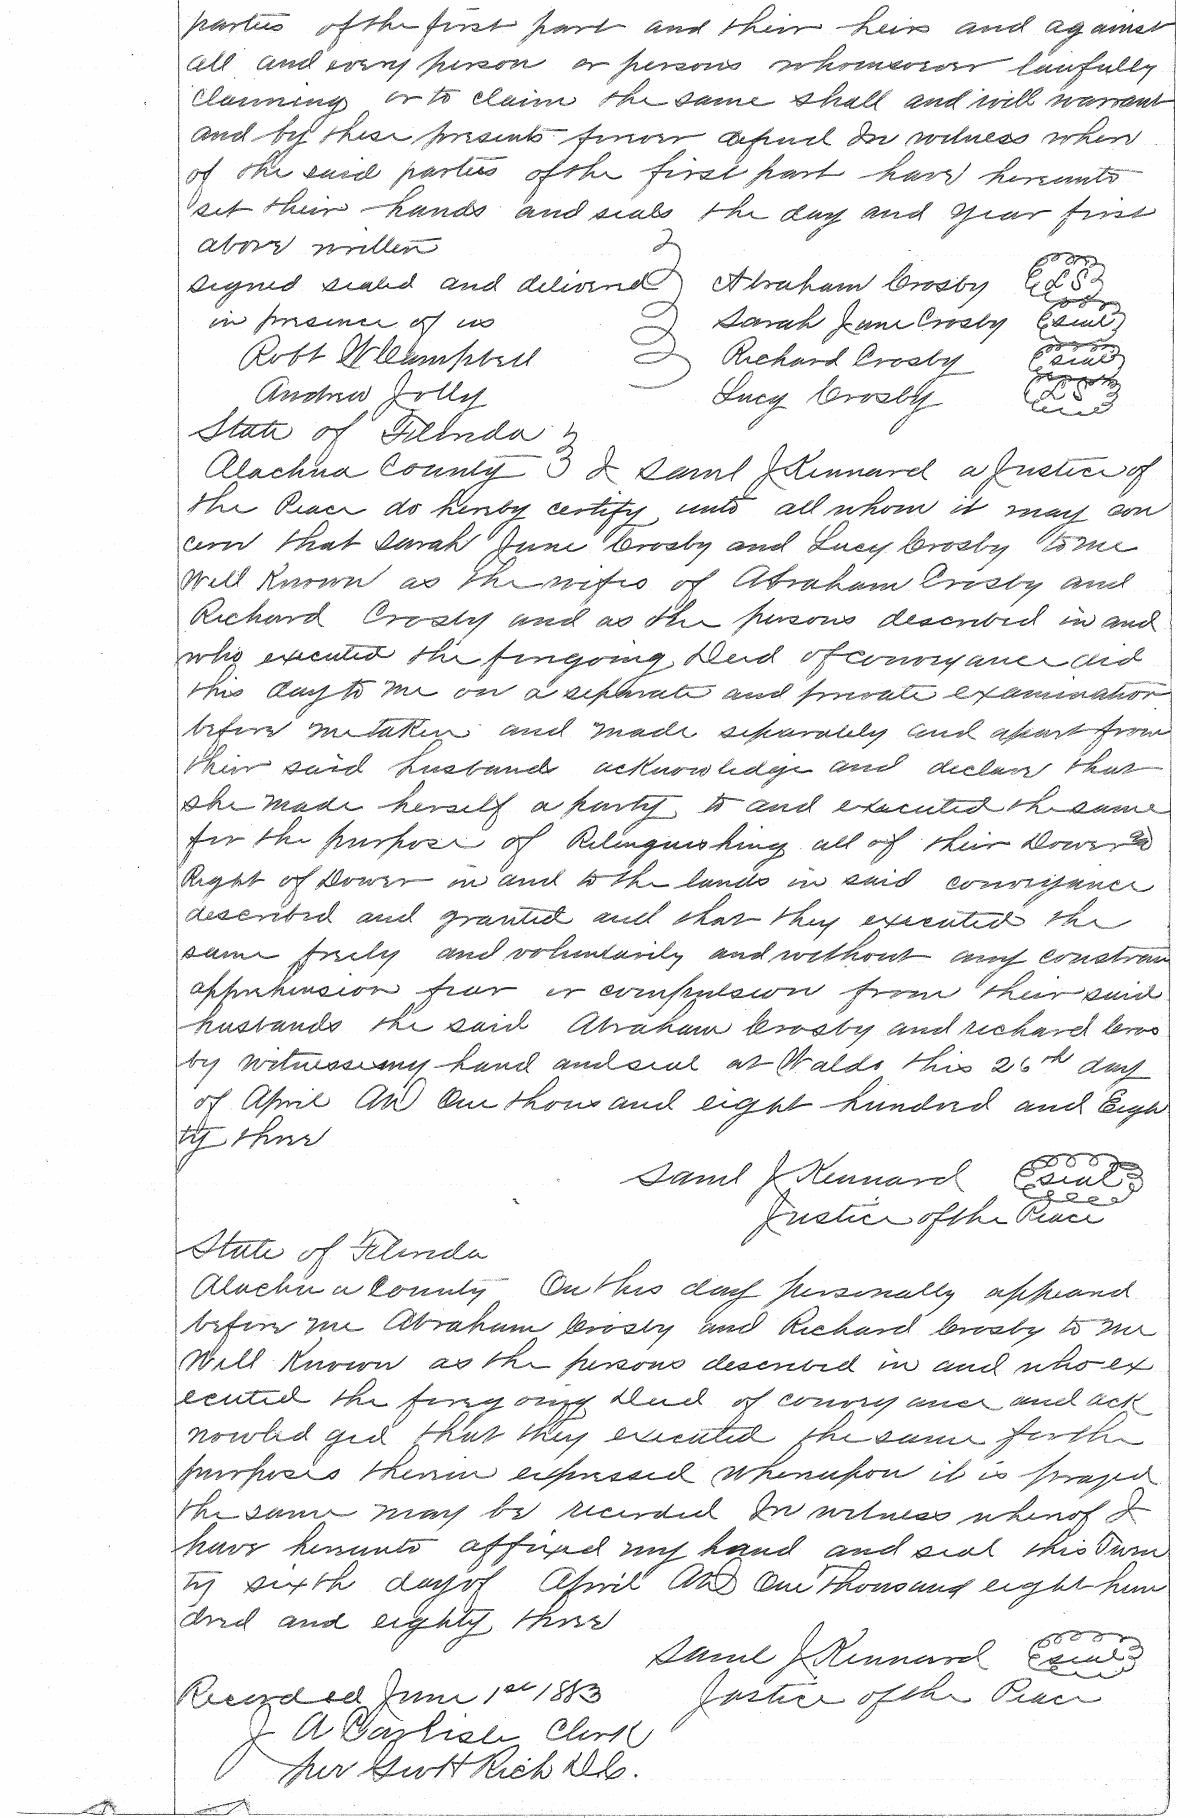 parties of the first part and their heirs and against
all and every person or persons whomsoever lawfully
claiming or to claim the same shall and will warrant
and by these presents forever defend In witness where
of the said parties of the first part have hereunto
set their hands and seals the day and year first
above written
signed sealed and delivered Abraham Crosby LS
in presence of us Sarah Jane Crosby seal
Robt W Campbell Richard Crosby seal
Andrew Jolly Lucy Crosby LS
State of Florida
Alachua County I Saml J Kennard a Justice of
the Peace do hereby certify unto all whom it may con
cern that Sarah Jane Crosby and Lucy Crosby to me
Well Known as the wifes of Abraham Crosby and
Richard Crosby and as the persons described in and
who executed the foregoing Deed of conveyance did
this day to me on a separate and private examination
before me taken and made separately and apart from
their said husbands acknowledge and declare that
she made herself a party to and executed the same
for the purpose of Relinquishing all of their Dower or
Right of Dower in and to the lands in said conveyance
described and granted and that they executed the
same freely and voluntarily and without any constrain
apprehension fear or compulsion from their said
husbands the said Abraham Crosby and richard Cros
by witness my hand and seal at Waldo this 26th day
of April AD One thousand eight hundred and Eigh
ty three
Saml J Kennard seal
Justice of the Peace
State of Florida
Alachua County On this day personally appeared
before me Abraham Crosby and Richard Crosby to me
Well Known as the persons described in and who ex
ecuted the foregoing Deed of conveyance and ack
nowledged that they executed the same for the
purposes therein expressed whereupon it is prayed
the same may be recorded In witness whereof I
have hereunto affixed my hand and seal this Twen
ty sixth day of April AD One Thousand eight hun
dred and eighty three
Saml J Kennard seal
Recorded June 1st 1883 Justice of the Peace
J A Carlisle Clerk
per Geo H Rich D.C.